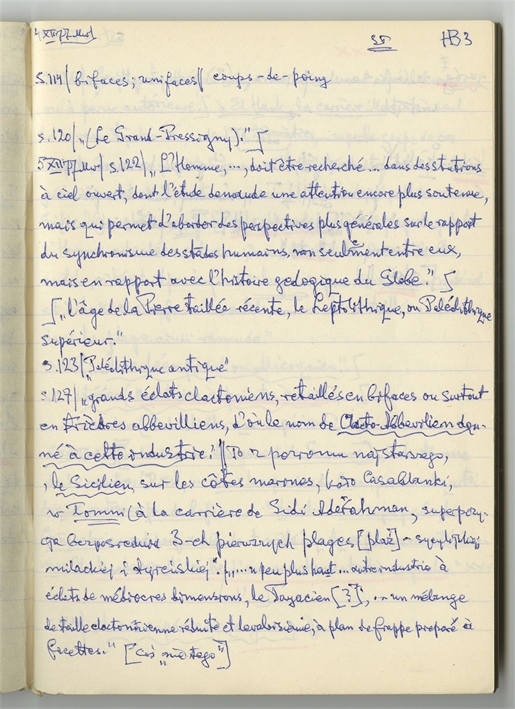 4 XII 57 Muz1 35 HB3
s.114/ bifaces; unifaces// coups-de-poing
s.120/ "(Le Grand-Pressigny)."
5 XII 57 s.122/ "L'Homme, ..., doit être recherché ... dans des stations
à ciel ouvert, dont l'étude demande une attention encore plus soutenue,
mais qui permet d'aborder des perspectives plus générales sur le rapport
du synchronisme des stades humains, non seulement entre eux,
mais en rapport avec l'histoire géologique du Globe."
"l'âge de la Pierre taillée récente, le Leptolithique, ou Paléolithique
supérieur."
s.123/ "Paléolithique antique"
s.127/ "grands éclats clactoniens, retaillés en bifaces ou surtout
en trièdres abbevilliens, d'où le nom de Clacto-Abbevillien don-
né à cette industrie." To z powodu najstarszego,
le Sicilien, sur les côtes marines, koło Casablanki,
w (à la carrière de Sidi Abderahman, superpozy-
cja bezpośrednia 3-ch pierwszych plages [plaż] - sycylijskiej,
milackiej i tyreńskiej". "... un peu plus haut ... autre industrie à
éclats de médiocres dimensions, le Tayacien [?], ... un mélange
de taille clactonienne réduite et levalloisienne, à plan de frappe préparé à
facettes." [coś "nie tego"]